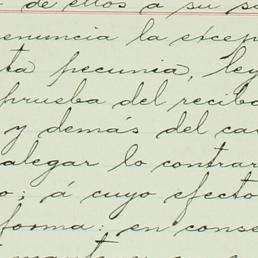 de ellos a su sa
enuncia la excep
ta pecunia, ley
prueba del recibo
y demás del ca
alegar lo contrar
o; á cuyo efecto
forma: en conse